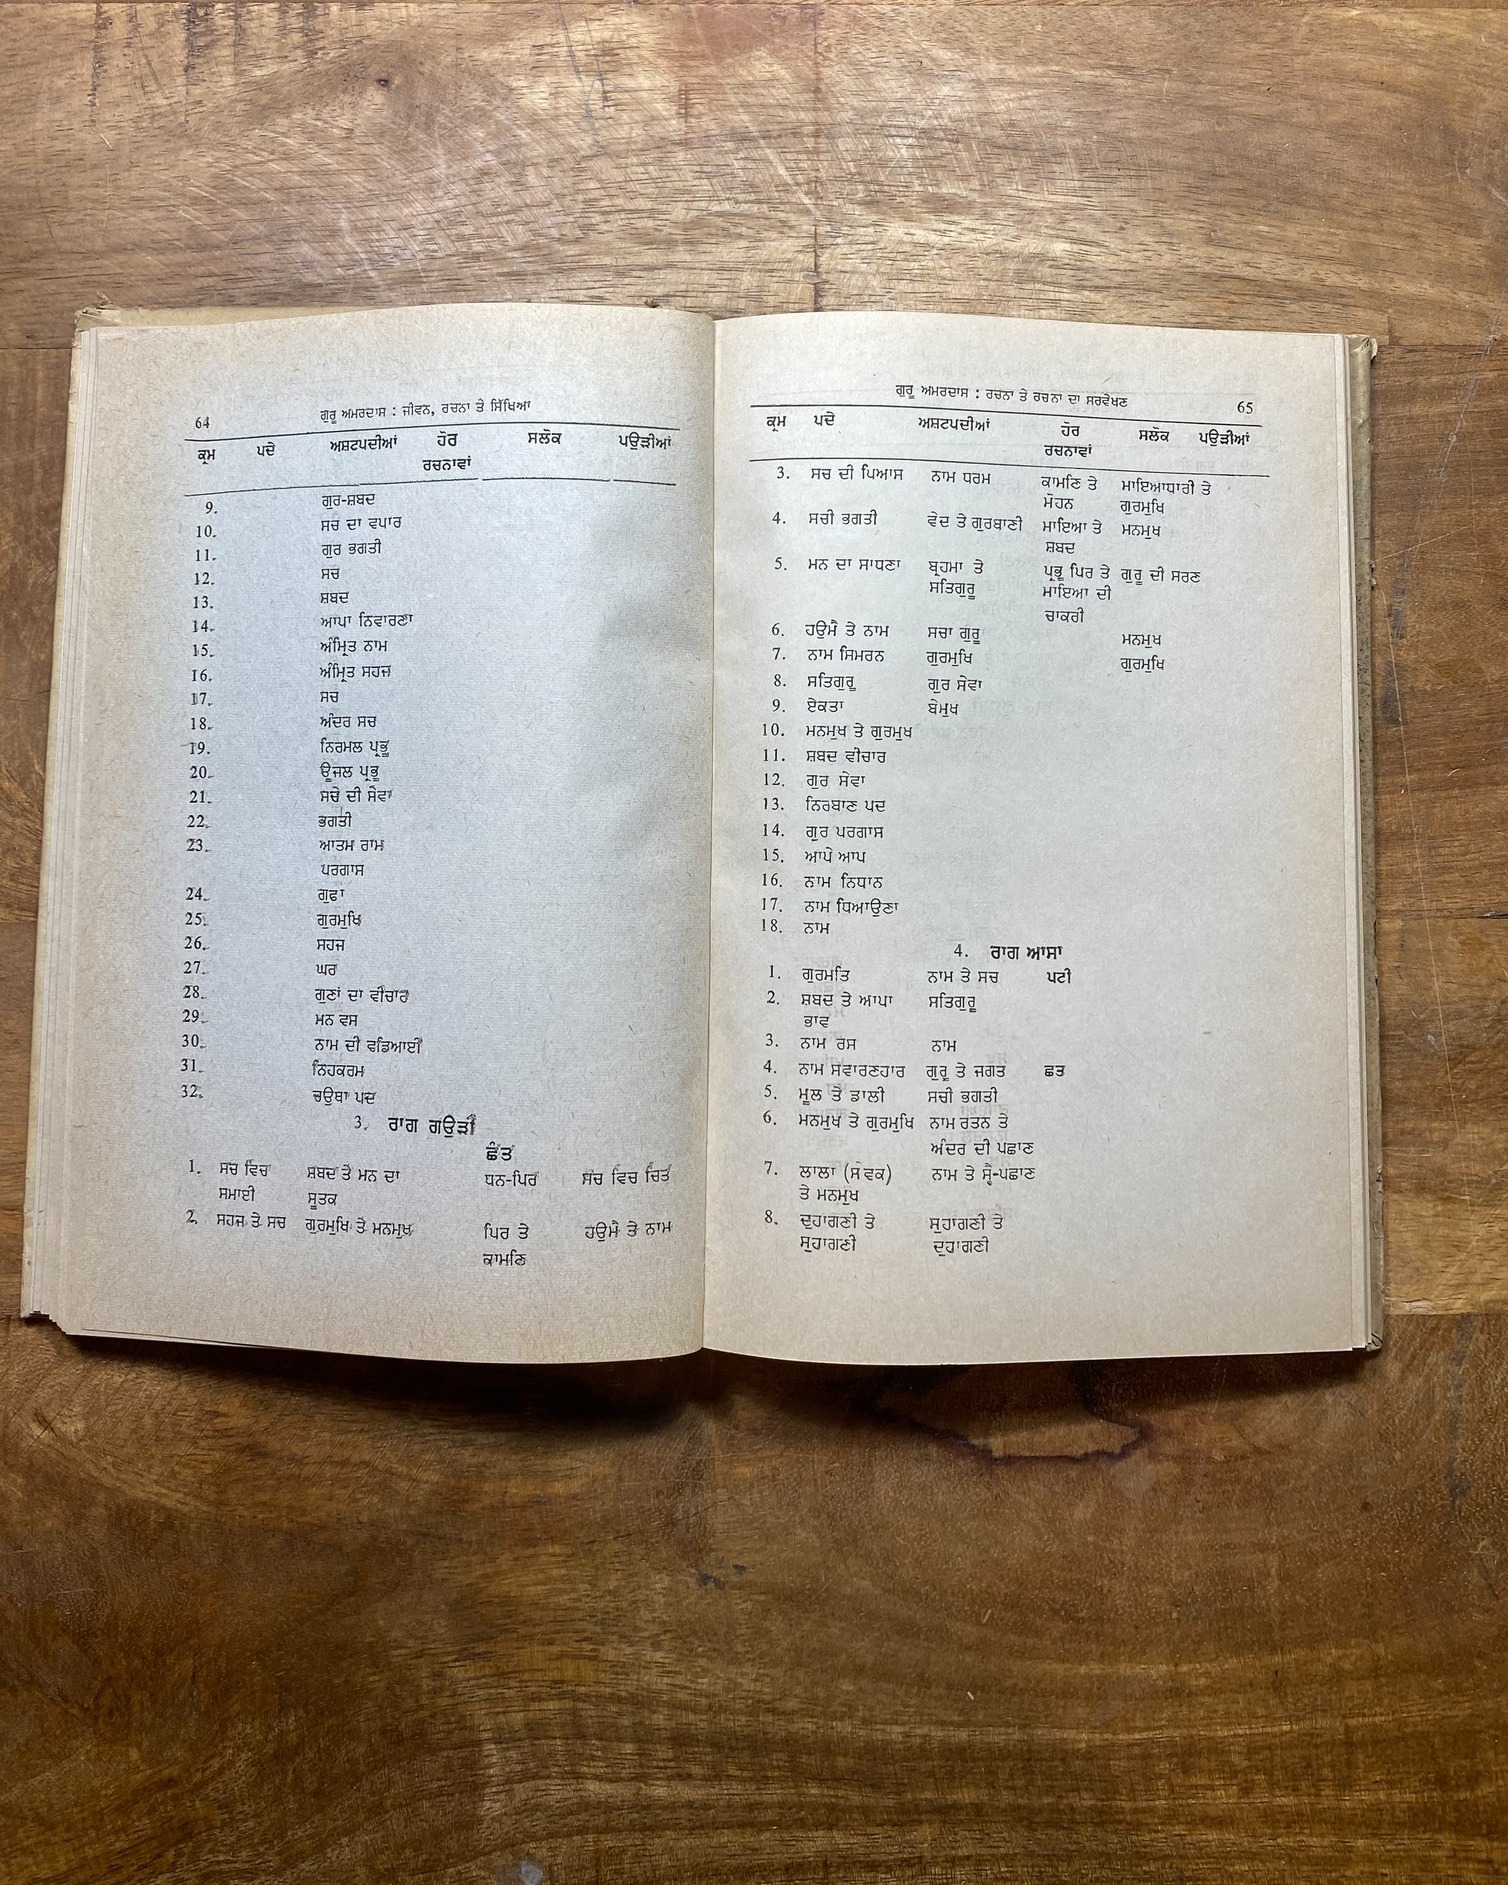 64 ਗੁਰੂ ਅਮਰਦਾਸ : ਜੀਵਨ, ਰਚਨਾ ਤੇ ਸਿੱਖਿਆ
ਕ੍ਰਮ ਪਦੇ ਅਸ਼ਟਪਦੀਆਂ ਹੋਰ ਸਲੋਕ ਪਉੜੀਆਂ
ਰਚਨਾਵਾਂ
9. ਗੁਰ-ਸ਼ਬਦ
10. ਸਚ ਦਾ ਵਪਾਰ
11. ਗੁਰ ਭਗਤੀ
12. ਸਚ
13. ਸ਼ਬਦ
14. ਆਪਾ ਨਿਵਾਰਣਾ
15. ਅੰਮ੍ਰਿਤ ਨਾਮ
16. ਅੰਮ੍ਰਿਤ ਸਹਜ
17. ਸਚ
18. ਅੰਦਰ ਸਚ
19. ਨਿਰਮਲ ਪ੍ਰਭੂ
20. ਊਜਲ ਪ੍ਰਭੂ
21. ਸਚੇ ਦੀ ਸੇਵਾ
22. ਭਗਤੀ
23. ਆਤਮ ਰਾਮ
ਪਰਗਾਸ
24. ਗੁਫਾ
25. ਗੁਰਮੁਖਿ
26. ਸਹਜ
27. ਘਰ
28. ਗੁਣਾਂ ਦਾ ਵੀਚਾਰ
29. ਮਨ ਵਸ
30. ਨਾਮ ਦੀ ਵਡਿਆਈ
31. ਨਿਹਕਰਮ
32. ਚਉਥਾ ਪਦ
3. ਰਾਗ ਗਉੜੀ
ਛੰਤ
1. ਸਚ ਵਿਚ ਸ਼ਬਦ ਤੇ ਮਨ ਦਾ ਧਨ-ਪਿਰ ਸਚ ਵਿਚ ਚਿਤ
ਸਮਾਈ ਸੂਤਕ
2. ਸਹਜ ਤੇ ਸਚ ਗੁਰਮੁਖਿ ਤੇ ਮਨਮੁਖ ਪਿਰ ਤੇ ਹਉਮੈ ਤੇ ਨਾਮ
ਕਾਮਣਿ
ਗੁਰੂ ਅਮਰਦਾਸ : ਰਚਨਾ ਤੇ ਰਚਨਾ ਦਾ ਸਰਵੇਖਣ 65
ਕ੍ਰਮ ਪਦੇ ਅਸ਼ਟਪਦੀਆਂ ਹੋਰ ਸਲੋਕ ਪਉੜੀਆਂ
ਰਚਨਾਵਾਂ
3. ਸਚ ਦੀ ਪਿਆਸ ਨਾਮ ਧਰਮ ਕਾਮਣਿ ਤੇ ਮਾਇਆਧਾਰੀ ਤੇ
ਮੋਹਨ ਗੁਰਮੁਖਿ
4. ਸਚੀ ਭਗਤੀ ਵੇਦ ਤੇ ਗੁਰਬਾਣੀ ਮਾਇਆ ਤੇ ਮਨਮੁਖ
ਸ਼ਬਦ
5. ਮਨ ਦਾ ਸਾਧਣਾ ਬ੍ਰਹਮਾ ਤੇ ਪ੍ਰਭੂ ਪਿਰ ਤੇ ਗੁਰੂ ਦੀ ਸਰਣ
ਸਤਿਗੁਰੂ ਮਾਇਆ ਦੀ
ਚਾਕਰੀ
6. ਹਉਮੈ ਤੇ ਨਾਮ ਸਚਾ ਗੁਰੂ ਮਨਮੁਖ
7. ਨਾਮ ਸਿਮਰਨ ਗੁਰਮੁਖਿ ਗੁਰਮੁਖਿ
8. ਸਤਿਗੁਰੂ ਗੁਰ ਸੇਵਾ
9. ਏਕਤਾ ਬੇਮੁਖ
10. ਮਨਮੁਖ ਤੇ ਗੁਰਮੁਖ
11. ਸ਼ਬਦ ਵੀਚਾਰ
12. ਗੁਰ ਸੇਵਾ
13. ਨਿਰਬਾਣ ਪਦ
14. ਗੁਰ ਪਰਗਾਸ
15. ਆਪੇ ਆਪ
16. ਨਾਮ ਨਿਧਾਨ
17. ਨਾਮ ਧਿਆਉਣਾ
18. ਨਾਮ
4. ਰਾਗ ਆਸਾ
1. ਗੁਰਮਤਿ ਨਾਮ ਤੇ ਸਚ ਪਟੀ
2. ਸ਼ਬਦ ਤੇ ਆਪਾ ਸਤਿਗੁਰੂ
ਭਾਵ
3. ਨਾਮ ਰਸ ਨਾਮ
4. ਨਾਮ ਸਵਾਰਣਹਾਰ ਗੁਰੂ ਤੇ ਜਗਤ ਛਤ
5. ਮੂਲ ਤੇ ਡਾਲੀ ਸਚੀ ਭਗਤੀ
6. ਮਨਮੁਖ ਤੇ ਗੁਰਮੁਖਿ ਨਾਮ ਰਤਨ ਤੇ
ਅੰਦਰ ਦੀ ਪਛਾਣ
7. ਲਾਲਾ (ਸੇਵਕ) ਨਾਮ ਤੇ ਸ੍ਵੈ-ਪਛਾਣ
ਤੇ ਮਨਮੁਖ
8. ਦੁਹਾਗਣੀ ਤੇ ਸੁਹਾਗਣੀ ਤੇ
ਸੁਹਾਗਣੀ ਦੁਹਾਗਣੀ